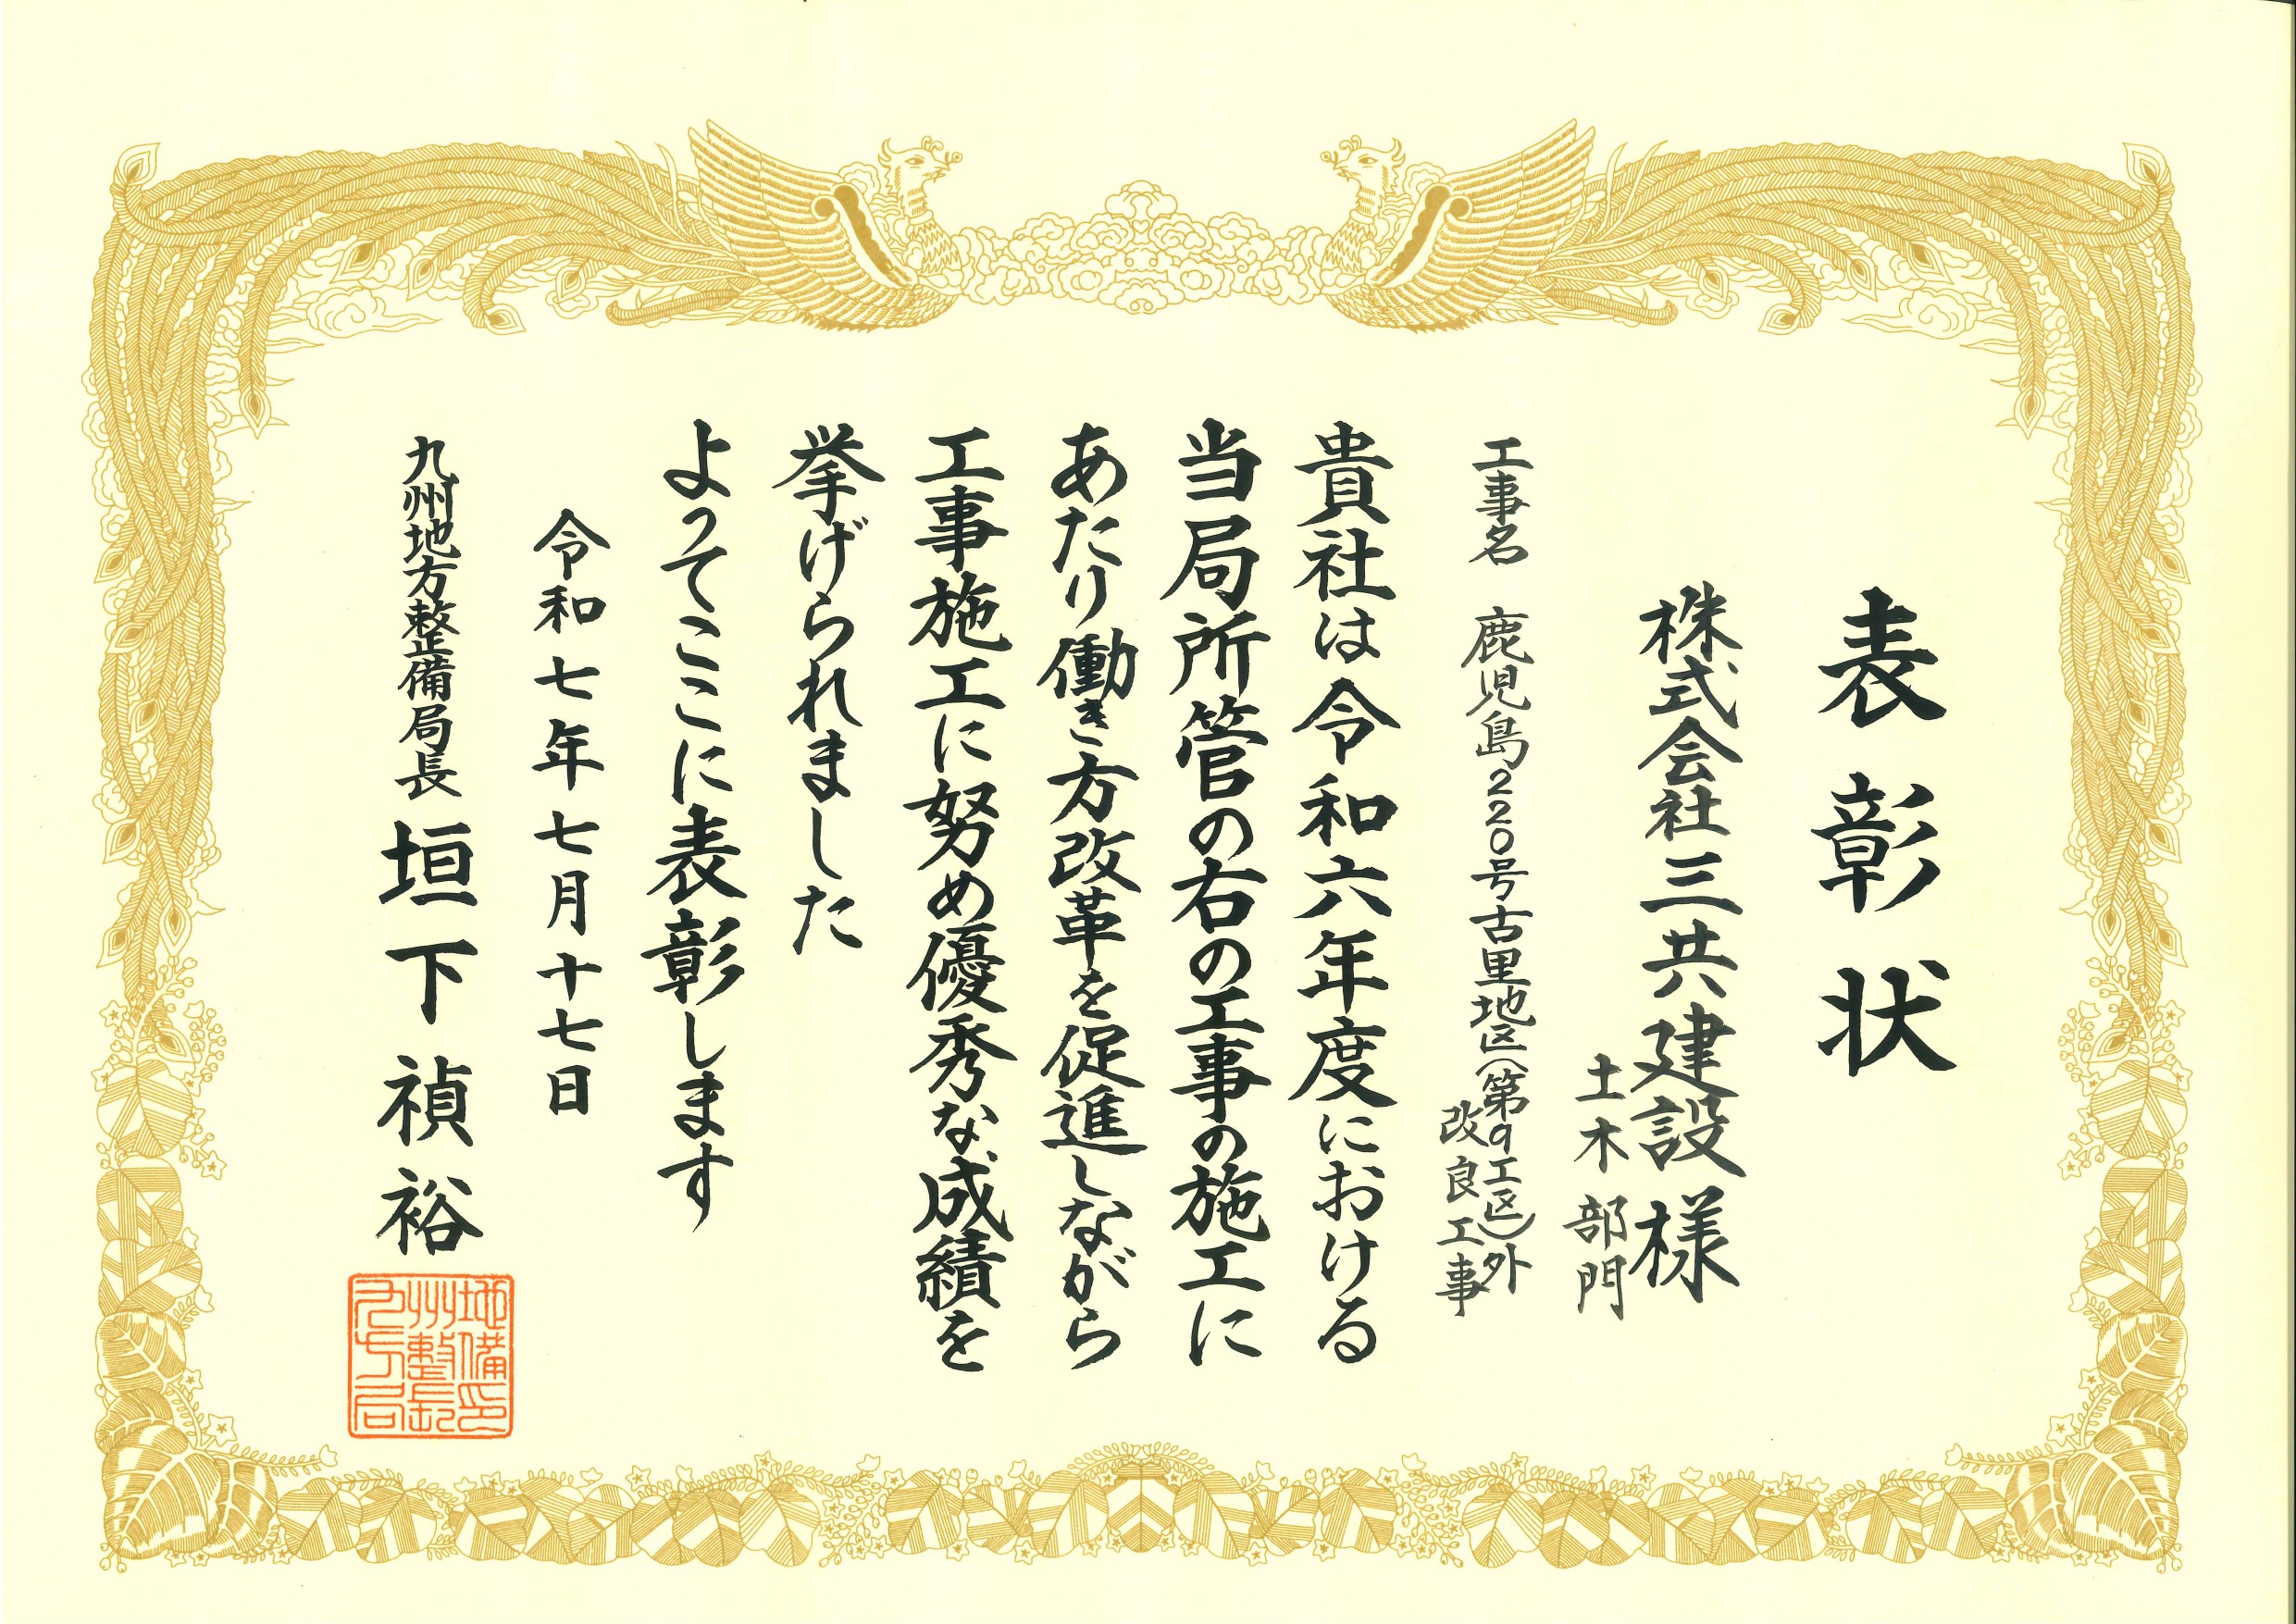 表彰状
株式会社三共建設様
土木部門
工事名 鹿児島220号古里地区(第9工区)外
改良工事
貴社は令和六年度における
当局所管の右の工事の施工に
あたり働き方改革を促進しながら
工事施工に努め優秀な成績を
挙げられました
よってここに表彰します
令和七年七月十七日
九州地方整備局長 垣下禎裕
地備印
州整長
九方局